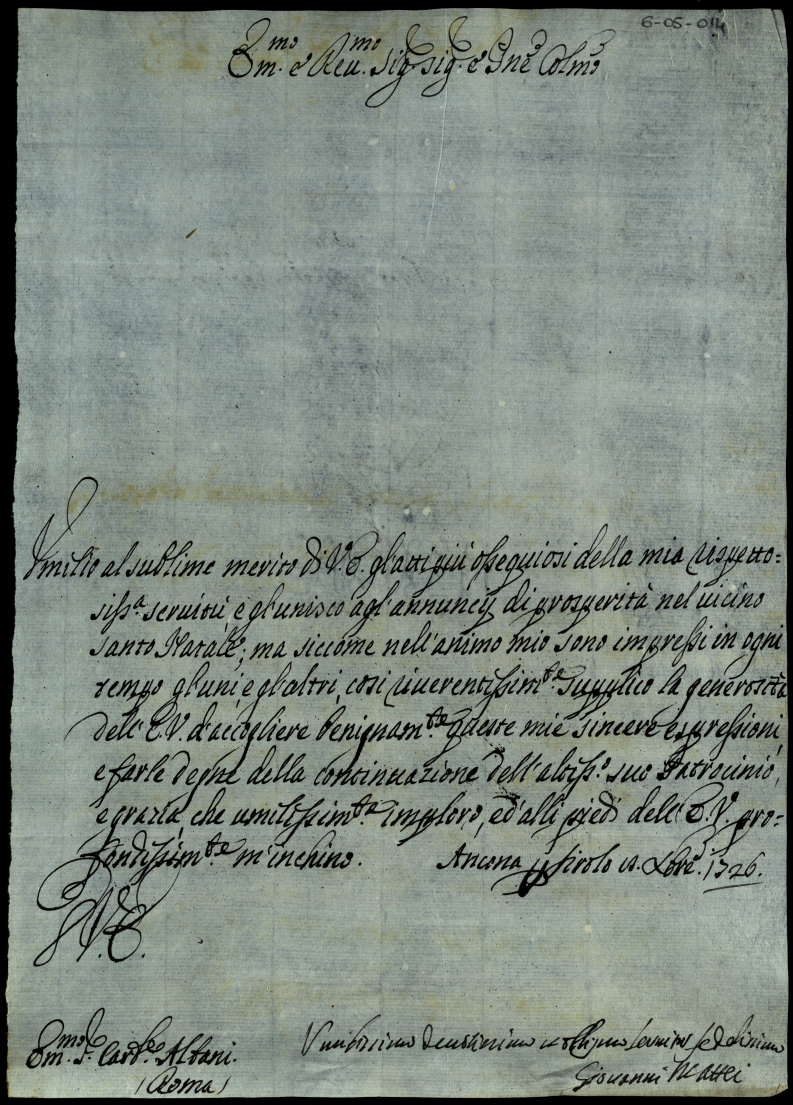 6-05-014
Em.mo e Reu.mo Sig.r Sig.r e Pne Colmo
Vmilio al sublime merito di V.E. gl'atti più ossequiosi della mia rispetto=
siss.a seruitù, e gl'unisco agl'annuncij di prosperità nel uicino
Santo Natale; ma siccome nell'animo mio sono impressi in ogni
tempo gl'uni, e gl'altri, così riuerentissim.te supplico la generosità
dell'E.V. d'accogliere benignam.te queste mie sincere espressioni,
e farle degne della continuazione dell'altiss.o suo Patrocinio,
e grazia, che umilissim.te imploro, ed'alli piedi dell'E.V. pro=
fondissim.te m'inchino. Ancona Sirolo 1726.
V.E.
Em.mo S.r Card.le Albani.
(Roma)
Vmilissimo Deuotissimo et Oblig.mo Seruitor
Giouanni Mattei